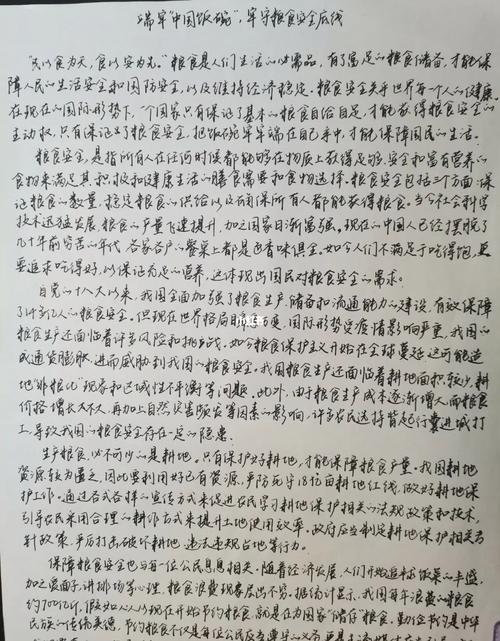 端牢"中国饭碗",牢守粮食安全底线
"民以食为天,食以安为先。"粮食是人们生活的必需品,有了富足的粮食储备,才能保
障人民的生活安全和国防安全,以及维持经济稳定。粮食安全关乎世界每一个人的健康。
在现在的国际形势下,一个国家只有保证了基本的粮食自给自足,才能获得粮食安全的
主动权,只有保证了粮食安全,把饭碗牢牢端在自己手中,才能保障国民的生活。
粮食安全,是指所有人在任何时候都能够在物质上获得足够、安全和富有营养的
食物来满足其积极和健康生活的膳食需要和食物选择。粮食安全包括三个方面:保
证粮食的数量,稳定粮食的供给以及确保所有人都能获得粮食。当今社会科学
技术迅猛发展,粮食的产量飞速提升,加之国家日渐富强。现在的中国人已经摆脱了
几十年前穷苦的年代,各家各户的餐桌上都是色香味俱全。如今人们不满足于吃得饱,更
要追求吃得好,以保证充足的营养,这体现出国民对粮食安全的需求。
自党的十八大以来,我国全面加强了粮食生产、储备和流通能力的建设,有效保障
了许多人的粮食安全。但现在世界格局日益多变,国际形势受疫情影响严重,我国的
粮食生产还面临着许多风险和挑战,如今粮食保护主义开始在全球蔓延这可能造
成通货膨胀,进而威胁到我国的粮食安全。我国粮食生产还面临着耕地面积较少,耕
地"非粮化"现象和区域性不平衡等问题。此外,由于粮食生产成本逐渐增大而粮食
价格增长不大,再加上自然灾害频发等因素的影响,许多农民选择背起行囊进城打
工,导致我国的粮食安全存在一定的隐患。
生产粮食,必不可少的是耕地。只有保护好耕地,才能保障粮食产量。我国耕地
资源较为匮乏,因此要利用好已有资源,严防死守18亿亩耕地红线,做好耕地保
护工作。通过各式各样的宣传方式来促进农民学习耕地保护相关的法规政策和技术,
引导农民采用合理的耕作方式来提升土地使用效率。政府应当制定耕地保护相关方
针政策,严厉打击破坏耕地、违法违规占地等行为。
保障粮食安全也与每一位公民息息相关。随着经济发展,人们开始追求饭菜的丰盛,
加之爱面子,讲排场等心理,粮食浪费现象层出不穷。据统计显示,我国每年浪费的粮食
约700亿斤,假如人人从现在开始节约粮食,就是在为国家"储存"粮食。勤俭节约是中华
民族的传统美德,节约粮食不仅是每位公民应当遵守的义务,更是